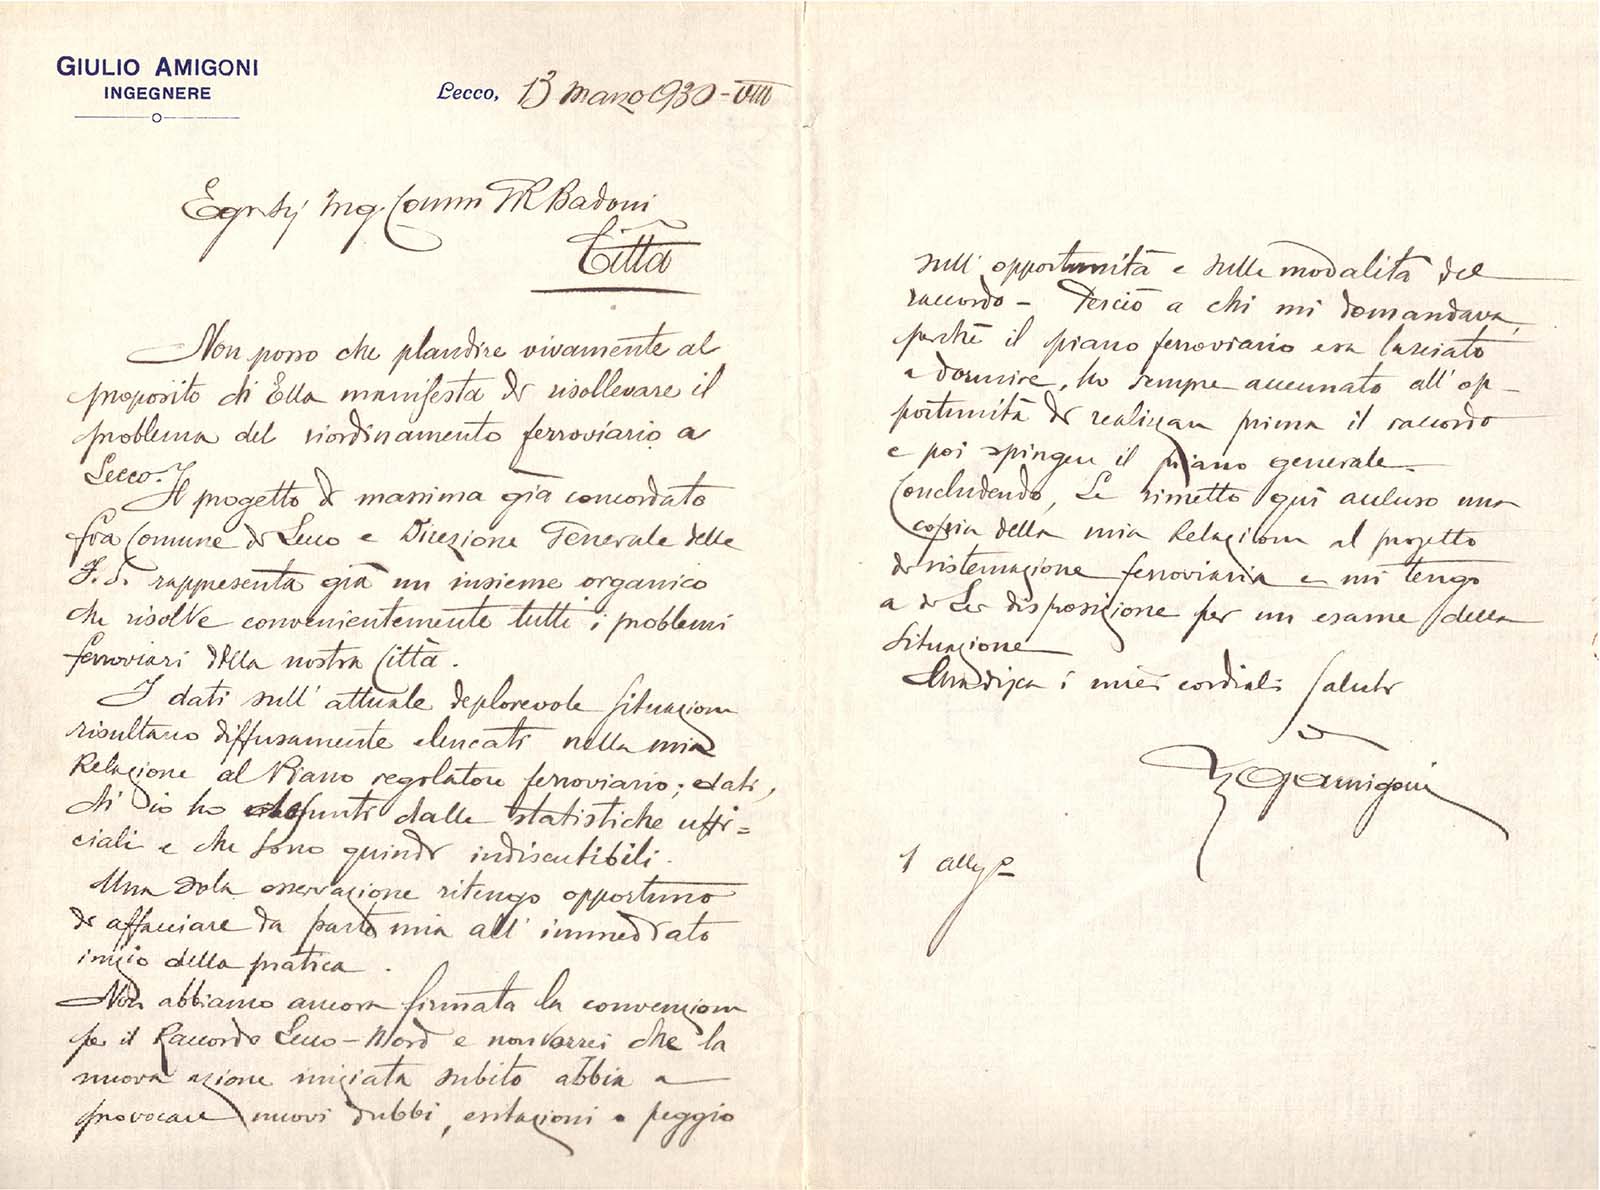 GIULIO AMIGONI
INGEGNERE
Lecco, 13 Marzo 930-VIII
Egr. Sig Ing. Comm GR Badoni
Città
Non posso che plaudire vivamente al
proposito ch'Ella manifesta di risollevare il
problema del riordinamento ferroviario a
Lecco.
Il progetto di massima già concordato
fra Comune di Lecco e Direzione Generale delle
F.S. rappresenta già un insieme organico
che risolve convenientemente tutti i problemi
ferroviari della nostra Città.
I dati sull'attuale deplorevole situazione
risultano diffusamente elencati nella mia
Relazione al Piano regolatore ferroviario; dati,
ch'io ho desunti dalle statistiche uffi=
ciali e che sono quindi indiscutibili.
Una sola osservazione ritengo opportuno
di affacciare da parte mia all'immediato
inizio della pratica.
Non abbiamo ancora firmata la convenzione
per il Raccordo Lecco-Nord e non vorrei che la
nuova azione iniziata subito abbia a
provocare nuovi dubbi, esitazioni o peggio
sull'opportunità e sulle modalità del
raccordo - Perciò a chi mi domandava,
perchè il piano ferroviario era lasciato
a dormire, ho sempre accennato all'op-
portunità di realizzare prima il raccordo
e poi spingere il piano generale.
Concludendo, Le rimetto qui accluso una
copia della mia Relazione al progetto
di sistemazione ferroviaria e mi tengo
a di Lei disposizione per un esame della
situazione
Gradisca i miei cordiali saluti
GAmigoni
1 alleg°